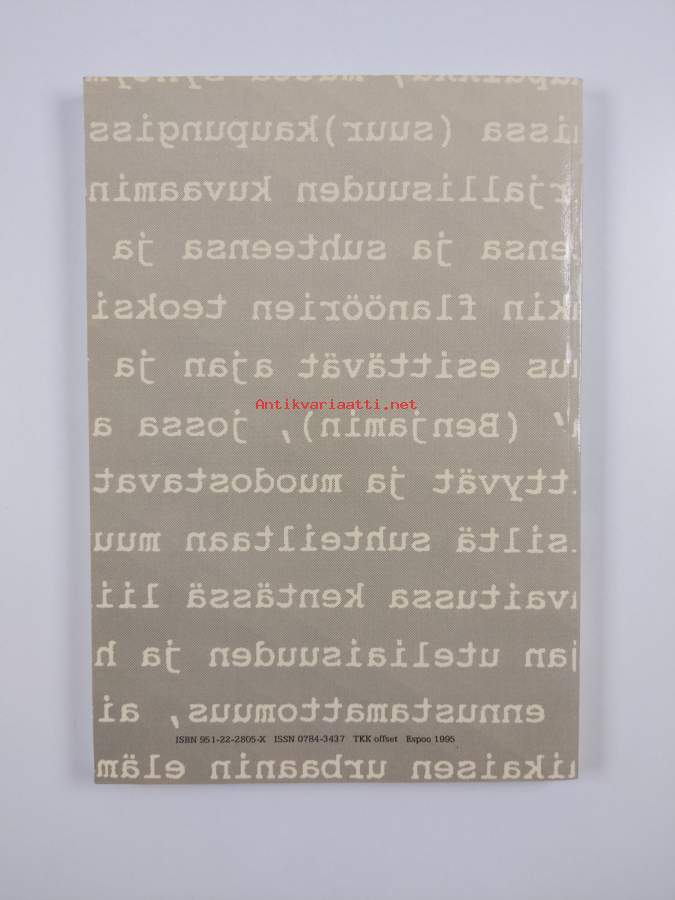 issa (suur)kaupungiss
rjallisuuden kuvaamin
ensa ja suhteensa ja
kin flanöörien teoksi
us esittävät ajan ja
Antikvariaatti.net
' (Benjamin), jossa a
ttyvät ja muodostavat
siltä suhteiltaan muu
vaitussa kentässä lii
jan uteliaisuuden ja h
ennustamattomuus, ai
ISBN 951-22-2805-X ISSN 0784-3437 TKK offset Espoo 1995
ikaisen urbaanin eläm